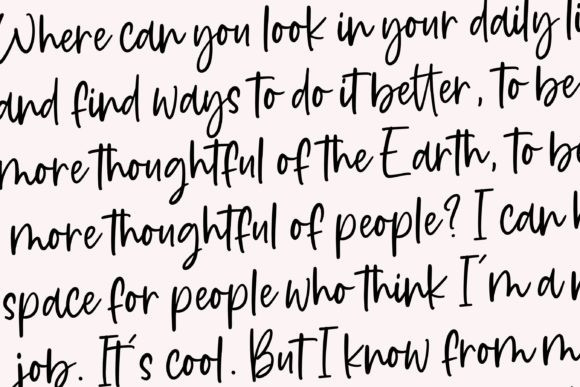 Where can you look in your daily li
and find ways to do it better, to be
more thoughtful of the Earth, to b
more thoughtful of people? I can h
space for people who think I'm a
job. It's cool. But I know from m